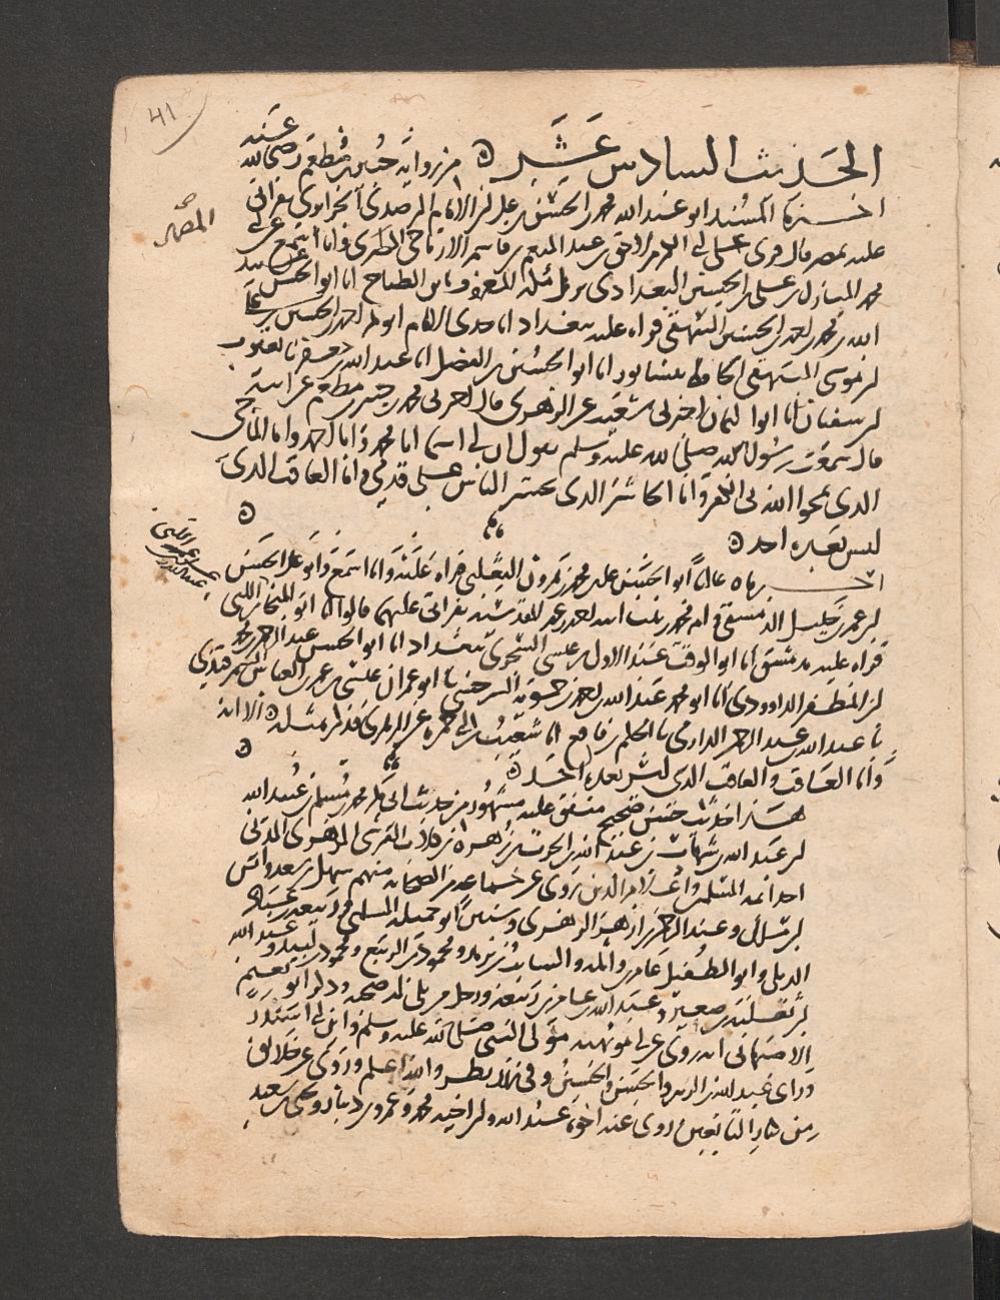 41
الحديث السادس عشر ه من رواية جبير بن مطعم رضي الله عنه
اخبرنا المسند ابو عبد الله محمد بن الحسن بن علي بقراتي
عليه بمصر قال قرى على عبد المنعم بن قاسم الارتاحي وانا اسمع
محمد المبارك بن علي بن الحسين البغدادي المعروف بابن الطباخ انا ابو الحسن عبيد
الله بن محمد بن احمد بن الحسين البيهقي قراه عليه ببغداد انا جدي الامام ابو بكر احمد بن الحسين بن علي
بن موسى البيهقي الحافظ بنيسابور انا ابو الحسين بن الفضل انا عبد الله بن جعفر نا يعقوب
بن سفيان نا ابو اليمان اخبرني شعيب عن الزهري قال اخبرني محمد بن جبير بن مطعم عن ابيه
قال سمعت رسول الله صلى الله عليه وسلم يقول ان لي اسما انا محمد وانا احمد وانا الماحي
الذي يمحوا الله بي الكفر وانا الحاشر الذي يحشر الناس على قدمي وانا العاقب الذي
ليس بعده احد ه
اخبرناه عاليا ابو الحسن علي بن محمد بن التغلبي قراه عليه وانا اسمع وابو علي الحسن
بن عمر بن خليل الدمشقي وام محمد زينب ابنه احمد بن عمر المقدسية بقراتي عليهما قالوا انا ابو المنجا بن اللتي
قراه عليه بدمشق انا ابو الوقت عبد الاول بن عيسى السجزي ببغداد انا ابو الحسن عبد الرحمن بن محمد
بن المظفر الداوودي انا ابو محمد عبد الله بن احمد بن حمويه السرخسي نا ابو عمران عيسى بن عمر بن العباس السمرقندي
نا عبد الله بن عبد الرحمن الدارمي نا الحكم بن نافع انا شعيب بن ابي حمزة عن الزهري فذكر مثله ه الا انه
وانا العاقب والعاقب الذي ليس بعده احد ه
هذا حديث حسن صحيح متفق عليه مشهور من حديث ابي بكر محمد بن مسلم بن عبيد الله
بن عبد الله بن شهاب بن عبد الله بن الحرث بن زهرة بن كلاب القرشي الزهري المدني
احد ائمة المسلمين واعلام الدين روى عن جماعة من الصحابة منهم سهل بن سعد وانس
بن مالك وعبد الرحمن بن ازهر الزهري وسنين ابو جميلة السلمي وربيعة بن عباد
الديلي وابو الطفيل عامر بن واثله والسايب بن يزيد ومحمود بن الربيع ومحمود بن لبيد وعبد الله
بن ثعلبة بن صعير وعبد الله بن عامر بن ربيعة ورجل من بلي له صحبه وذكر ابو نعيم
الاصبهاني انه روى عن ابي مويهبه مولى النبي صلى الله عليه وسلم وابي
وراى عبد الله بن الزبير والحسن والحسين وفي نظر والله اعلم وروى عن خلايق
من كبار التابعين روى عنه اخوه عبد الله وابن اخيه محمد وعمرو بن دينار ويحيى بن سعيد